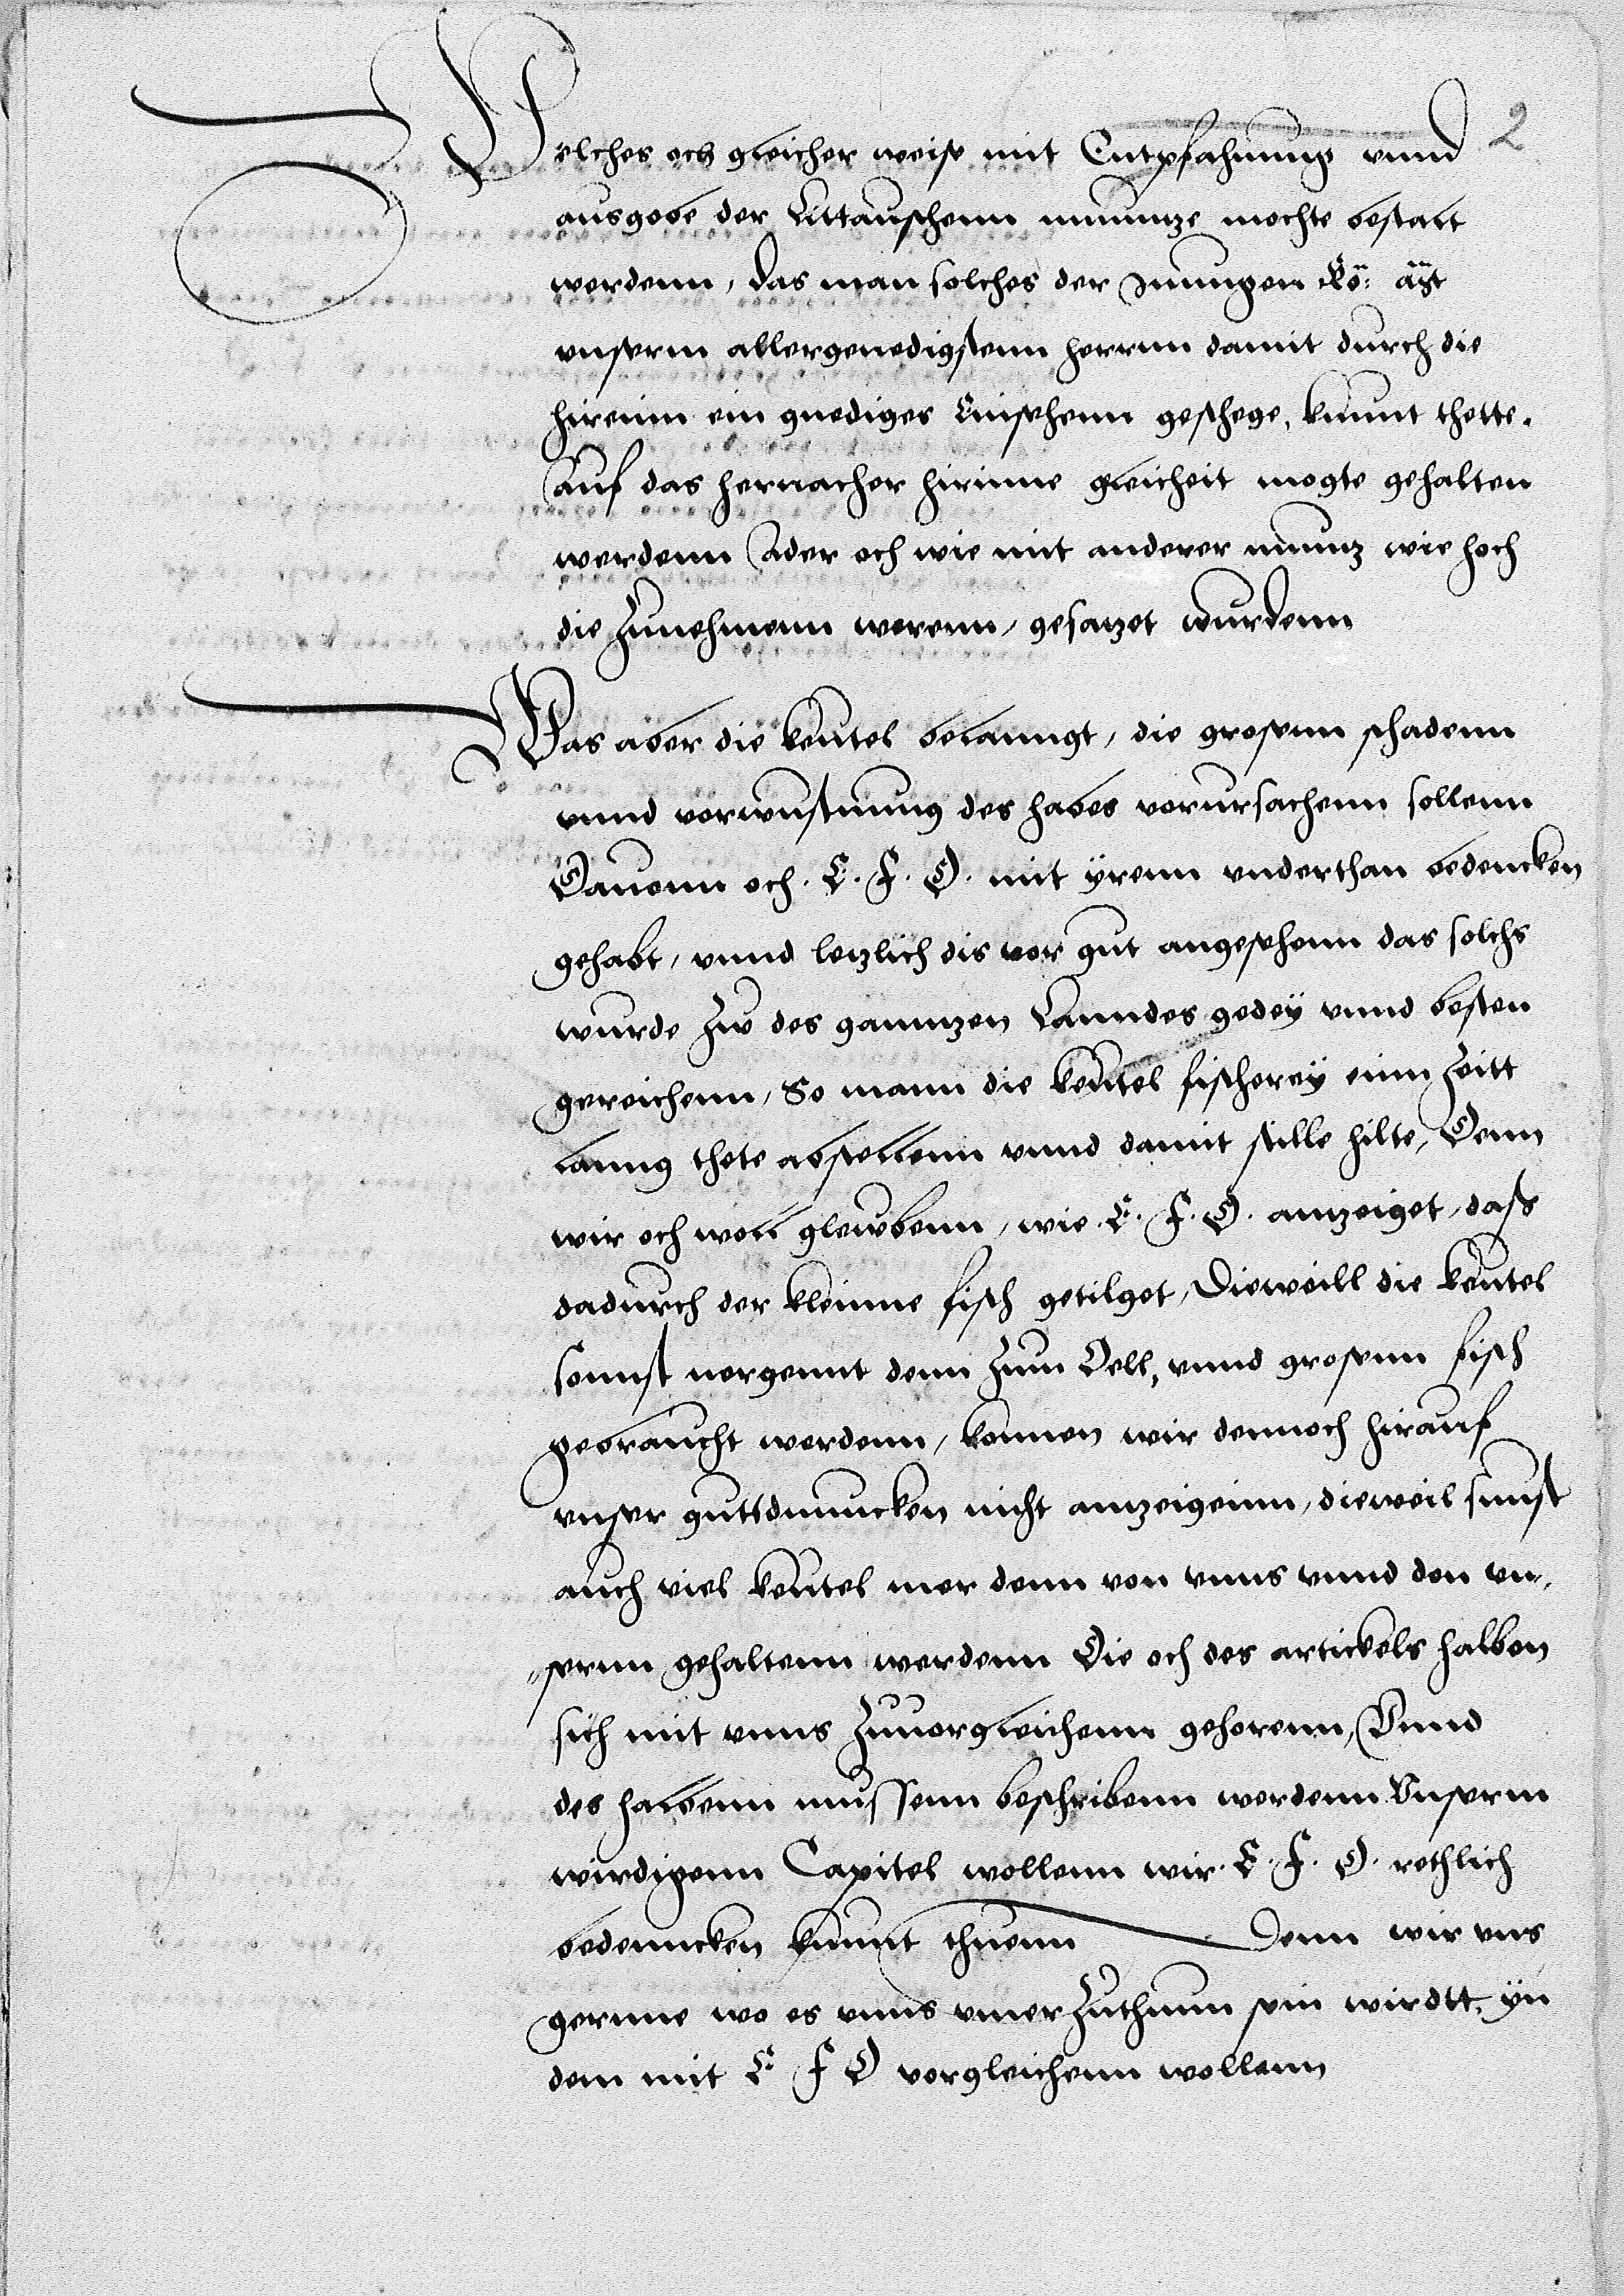 2
Welches och gleicher weise mit Entpfahnung vnnd
ausgebe der Littauschenn munnze mochte bestalt
werdenn, das man solches der Jungen Kö: Mt
vnserm allergenedigstenn herrnn damit durch die
hirinn ein gnediges Einsehenn geschege, kunnt thette.
Auf das hernacher hirinne gleicheit mogte gehalten
werdenn Ader och wie mit anderer munz wie hoch
die Zunehmenn werenn, gesatzet wurdenn
Was aber die keutel belanngt, die grosenn schadenn
vnnd vorwustnung des habes vorursachenn sollenn
Dauonn och. E. F. D. mit yrenn underthan bedencken
gehabt, vnnd letzlich dis vor gut angesehenn das solchs
wurde Zw des gannzen Lanndes gedey vnnd besten
gereichenn, So mann die keutel fischerey einn Zeitt
lanng thete abstellenn vnnd damit stille hilte, Denn
wir och woll glewbenn, wie. E. F. D. anzeiget, dass
dadurch der kleinne fisch getilget, Dieweill die keutel
sonnst nergennt denn Zum Oell, vnnd grosenn fisch
gebraucht werdenn, konnen wir dennoch hirauf
vnser guttdunncken nicht anzeigeinn, dieweil sunst
auch viel keutel mer denn von vnns vnnd den vn-
sernn gehaltenn werdenn Die och des artickels halben
sich mit vnns Zuuorgleichenn gehorenn, Vnnd
des halbenn mussenn beschribenn werdenn Vnserm
wirdigenn Capitel wollenn wir. E. F. D. rethlich
bedenncken kunnt thuenn Denn wir vns
gernne wo es vnns vmer Zuthunn sein wirdtt, yn
dem mit E F D vorgleichenn wollenn